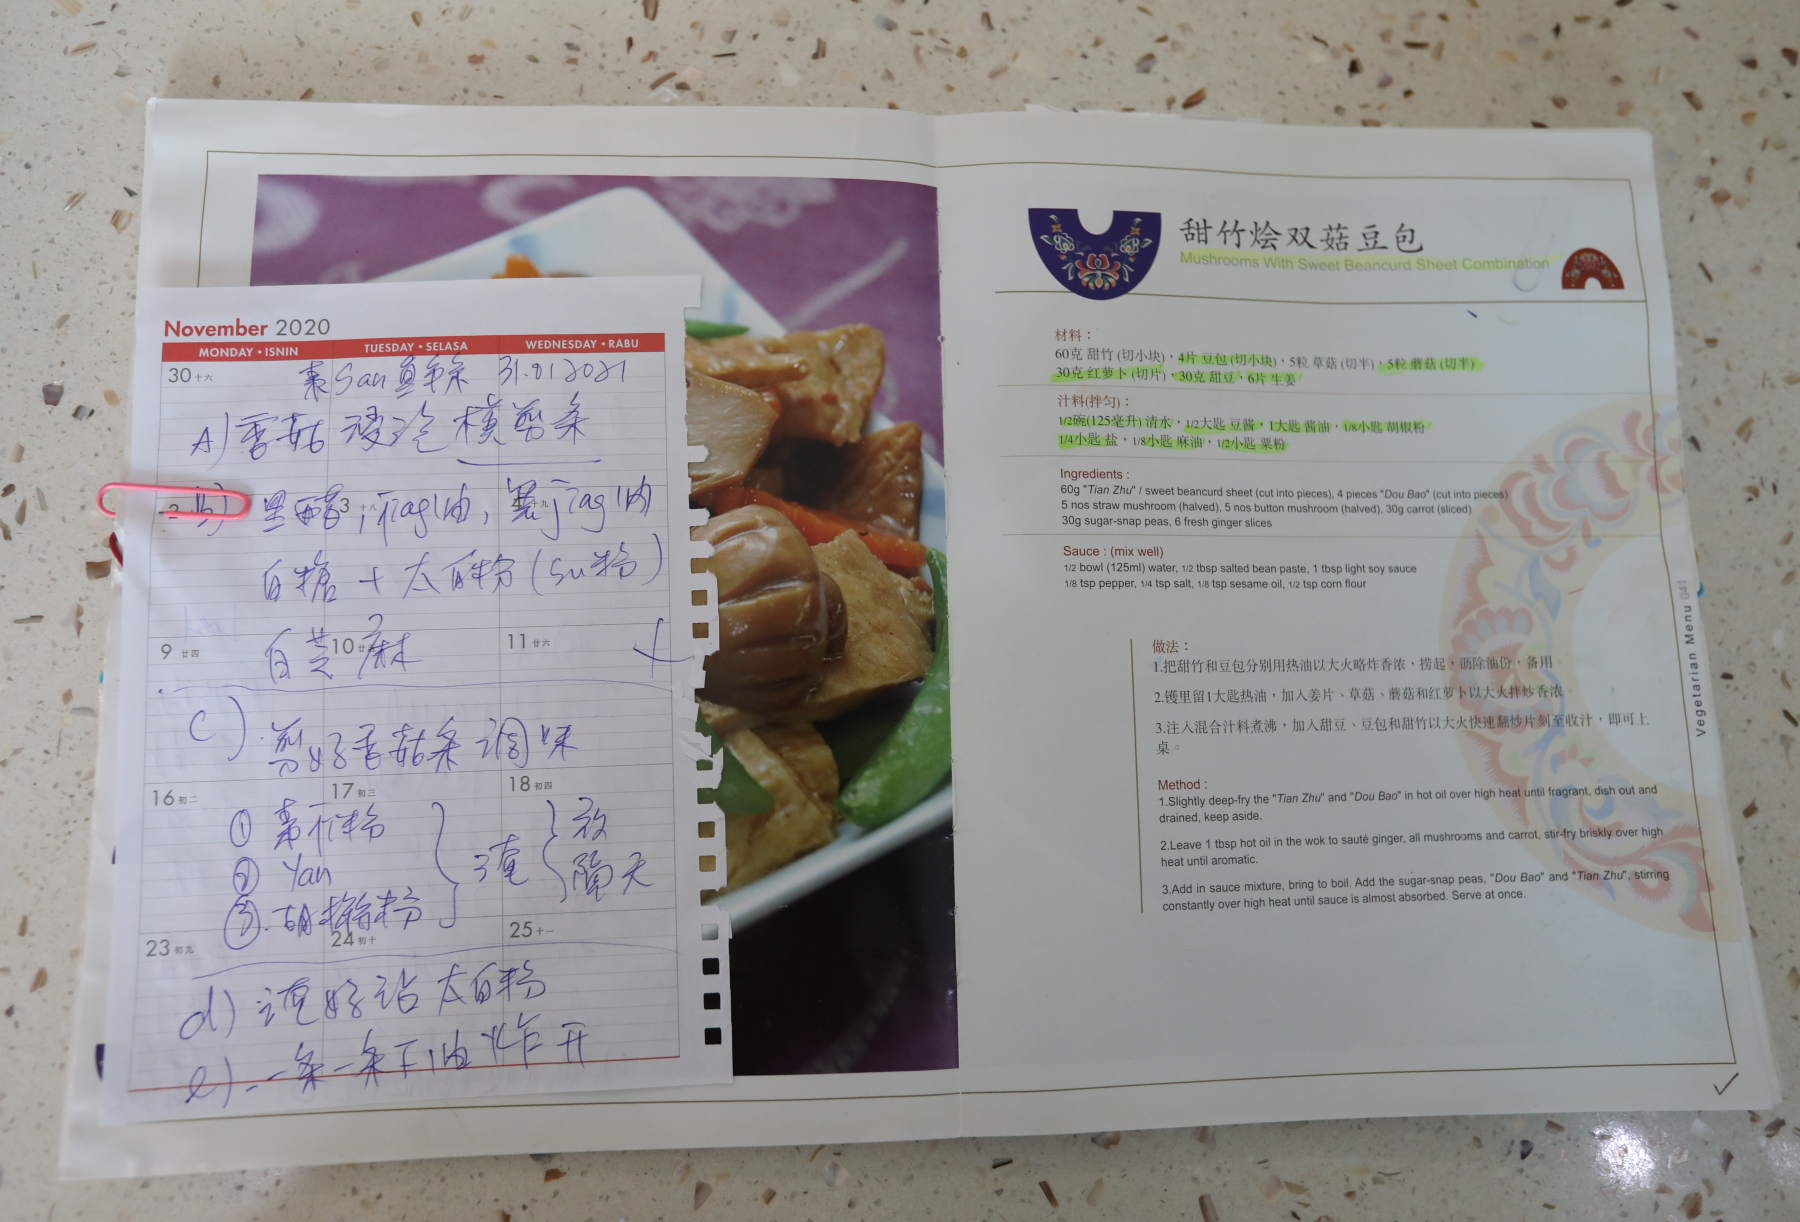 November 2020
MONDAY • ISNIN TUESDAY • SELASA WEDNESDAY • RABU
30 十六
素San鱼 31.01.2021
A) 香菇浸泡横剪条
2 3 十八
b) 黑醋, jiag油, 黑jiag油
白糖 + 太白粉 (Su粉)
9 廿四 10 廿五 11 廿六
白芝麻
c) 剪好香菇条调味
16 初二 17 初三 18 初四
① 粉
② Yan
③ 胡椒粉
放
隔天
23 初九 24 初十 25 十一
d) 好沾太白粉
e) 一条一条下油炸开
甜竹烩双菇豆包
Mushrooms With Sweet Beancurd Sheet Combination
材料：
60克 甜竹 (切小块)，4片 豆包 (切小块)，5粒 草菇 (切半)，5粒 蘑菇 (切半)
30克 红萝卜 (切片)，30克 甜豆，6片 生姜
汁料(拌匀)：
1/2碗(125毫升) 清水，1/2大匙 豆酱，1大匙 酱油，1/8小匙 胡椒粉
1/4小匙 盐，1/8小匙 麻油，1/2小匙 粟粉
Ingredients :
60g "Tian Zhu" / sweet beancurd sheet (cut into pieces), 4 pieces "Dou Bao" (cut into pieces)
5 nos straw mushroom (halved), 5 nos button mushroom (halved), 30g carrot (sliced)
30g sugar-snap peas, 6 fresh ginger slices
Sauce : (mix well)
1/2 bowl (125ml) water, 1/2 tbsp salted bean paste, 1 tbsp light soy sauce
1/8 tsp pepper, 1/4 tsp salt, 1/8 tsp sesame oil, 1/2 tsp corn flour
做法：
1.把甜竹和豆包分别用热油以大火略炸香浓，捞起，沥除油份，备用
2.镬里留1大匙热油，加入姜片、草菇、蘑菇和红萝卜以大火拌炒香浓
3.注入混合汁料煮沸，加入甜豆、豆包和甜竹以大火快速翻炒片刻至收汁，即可上
桌。
Method :
1.Slightly deep-fry the "Tian Zhu" and "Dou Bao" in hot oil over high heat until fragrant, dish out and
drained, keep aside.
2.Leave 1 tbsp hot oil in the wok to sauté ginger, all mushrooms and carrot, stir-fry briskly over high
heat until aromatic.
3.Add in sauce mixture, bring to boil. Add the sugar-snap peas, "Dou Bao" and "Tian Zhu", stirring
constantly over high heat until sauce is almost absorbed. Serve at once.
Vegetarian Menu 041